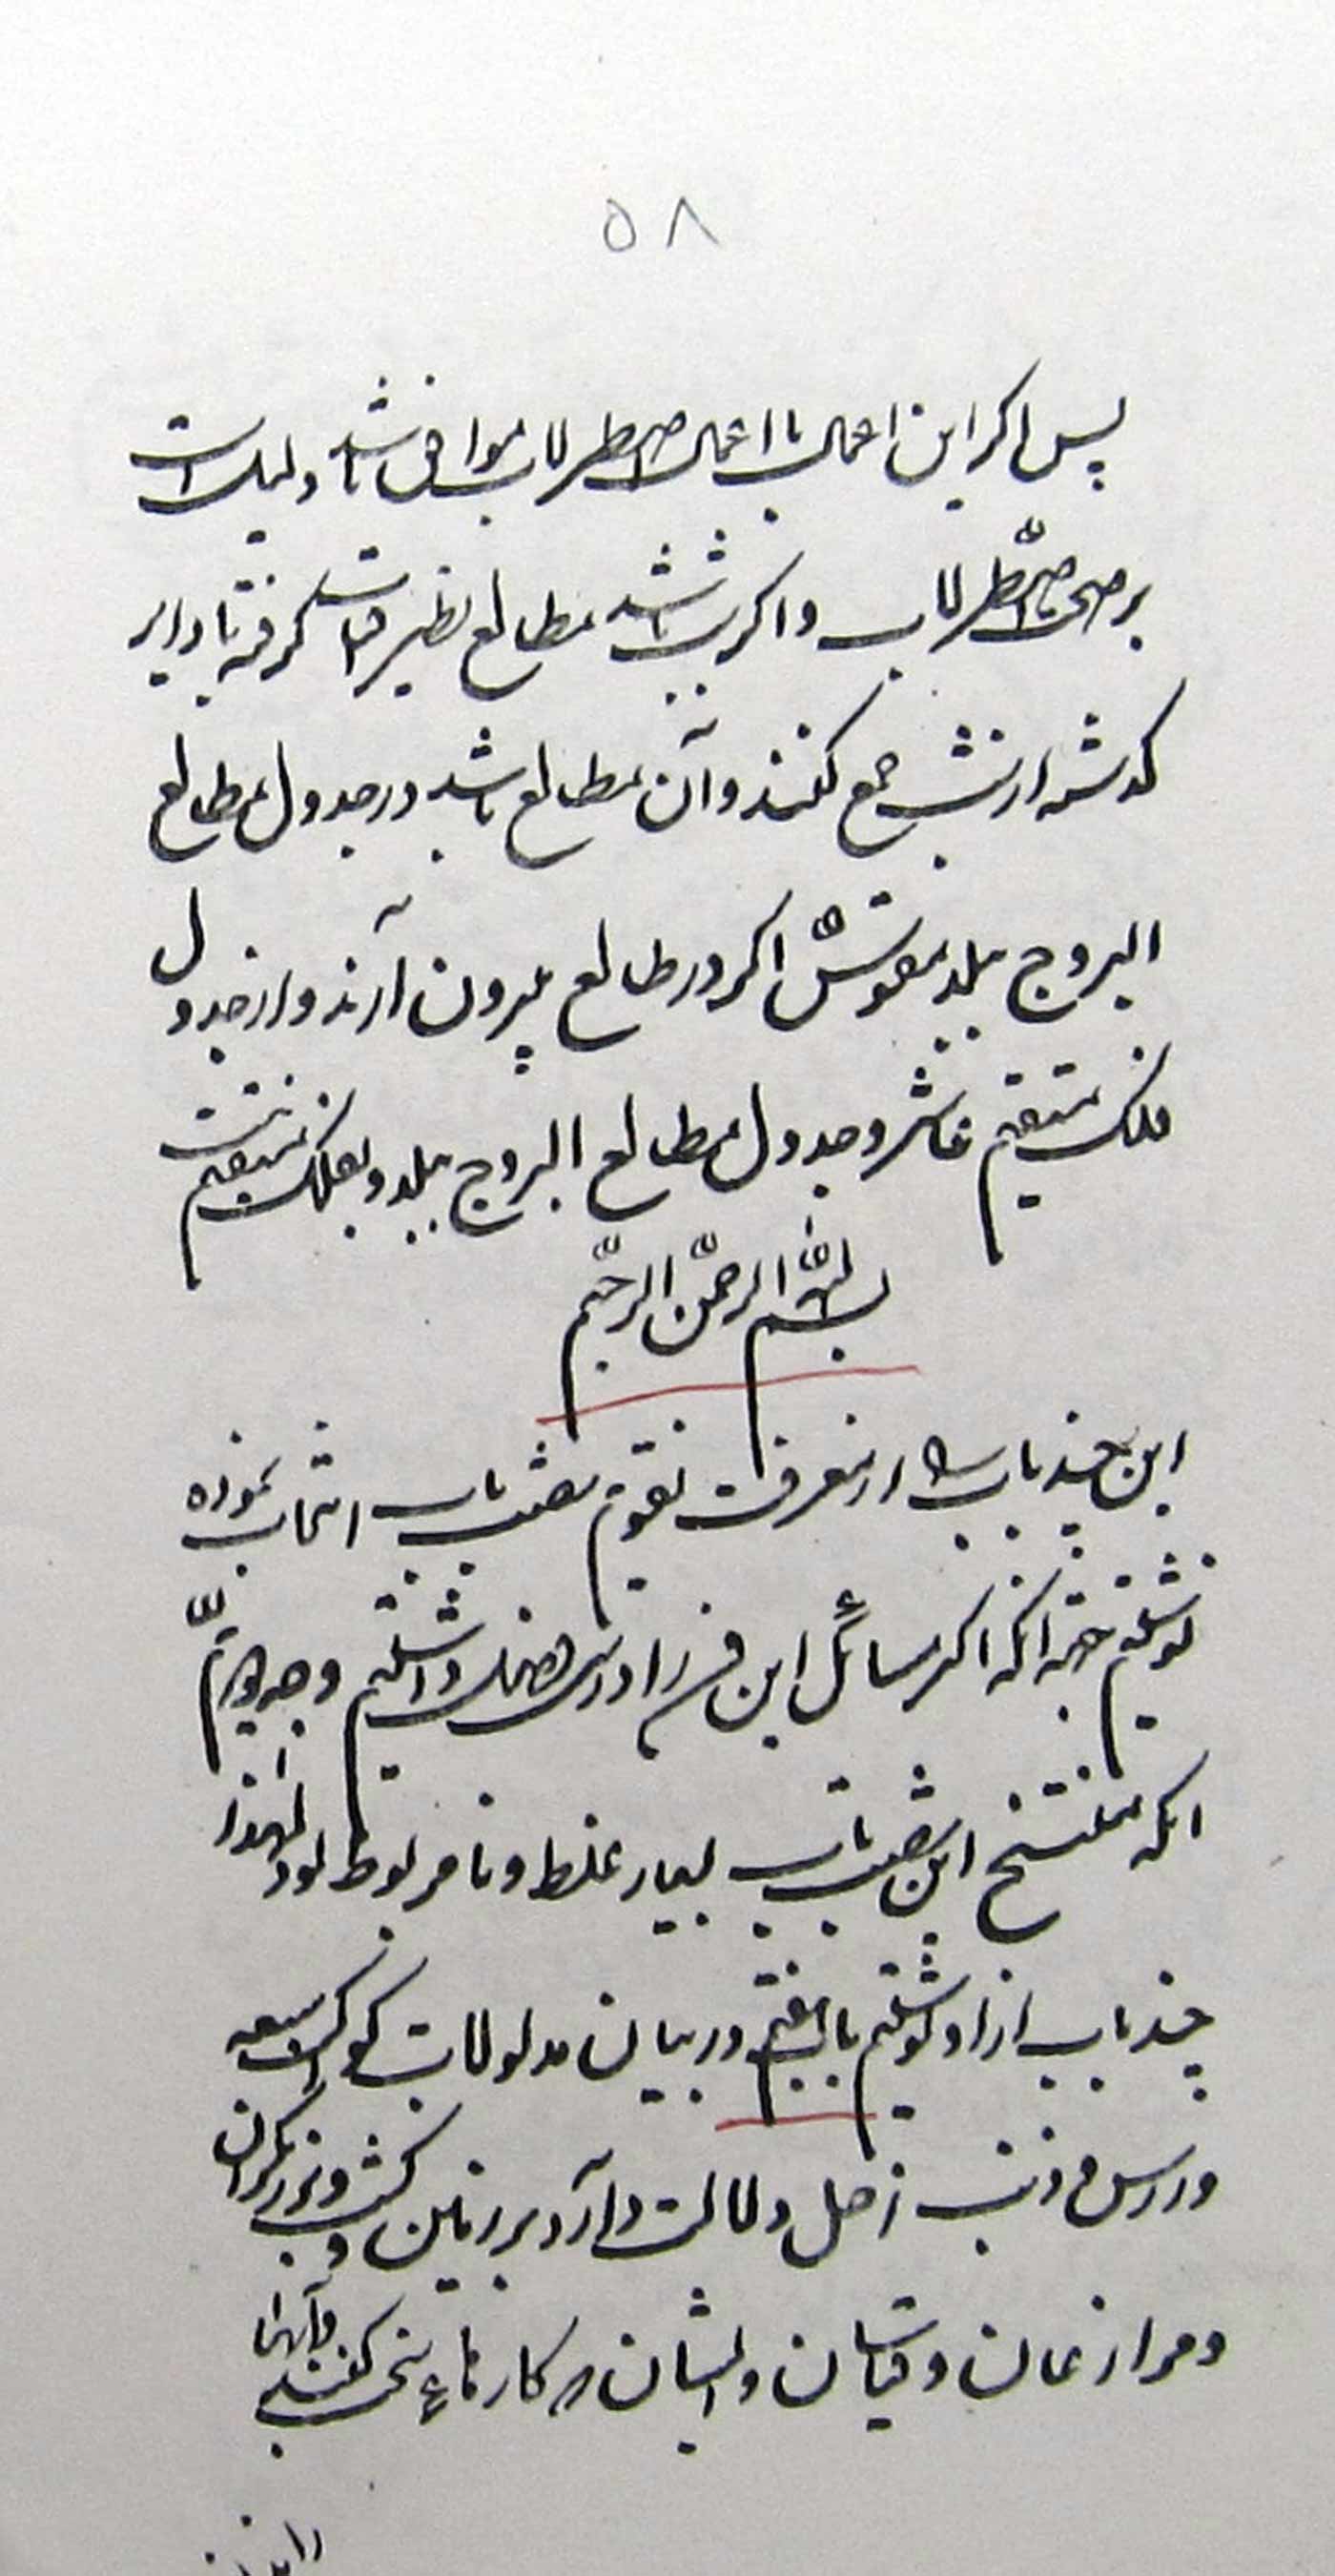 ۵۸
پس اگر این اعمال با اعمال اصطرلاب موافق باشد دلیل است
بر صحت اصطرلاب و اگر نباشد مطالع نظیر گرفته با دایر
گذشته از شب جمع کنند و آن مطالع باشد در جدول مطالع
البروج بلد مقوس اگر در طالع بیرون آرند و از جدول
فلک مستقیم عاشر و جدول مطالع البروج بلد و بفلک مستقیم
بسم الله الرحمن الرحیم
این چند باب را از معرفت تقویم شصت باب انتخاب نموده
نوشتیم جهة آنکه اکثر مسائل این فن را در داشتیم و وجه دویم
آنکه مستنسخ این شصت باب بسیار غلط و نامربوط بود لهذا
چند باب از او نوشتیم باب هفتم در بیان مدلولات کواکب سبعه
و رأس و ذنب زحل دلالت دارد بر زمین و کشت و برزیگران
و مزارعان و ایشان که کارهای سخت کنند و آنها